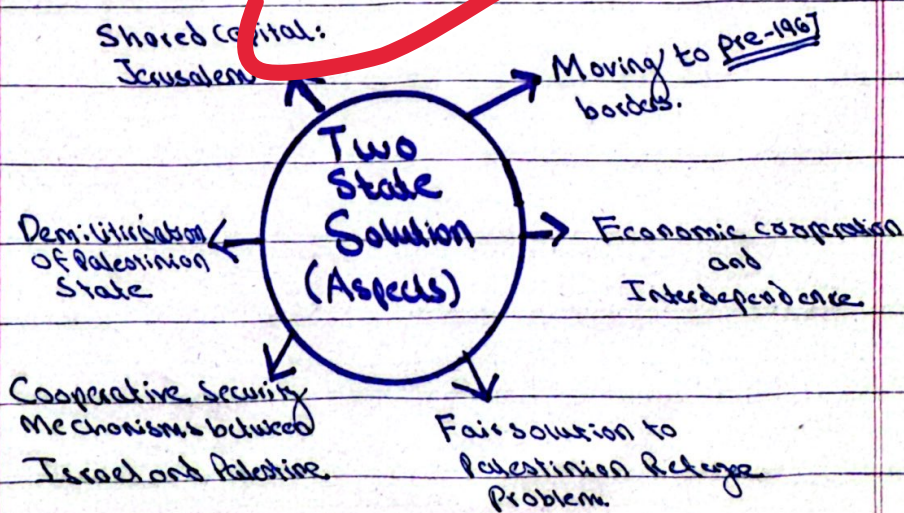 Shared Capital:
Jerusalem
Moving to pre-1967
borders.
Two
State
Solution
(Aspects)
Demilitirisation
Of Palestinian
State
Economic cooperation
and
Interdependence
Cooperative security
Mechanisms between
Israel and Palestine.
Fair solution to
Palestinian Refugee
Problem.